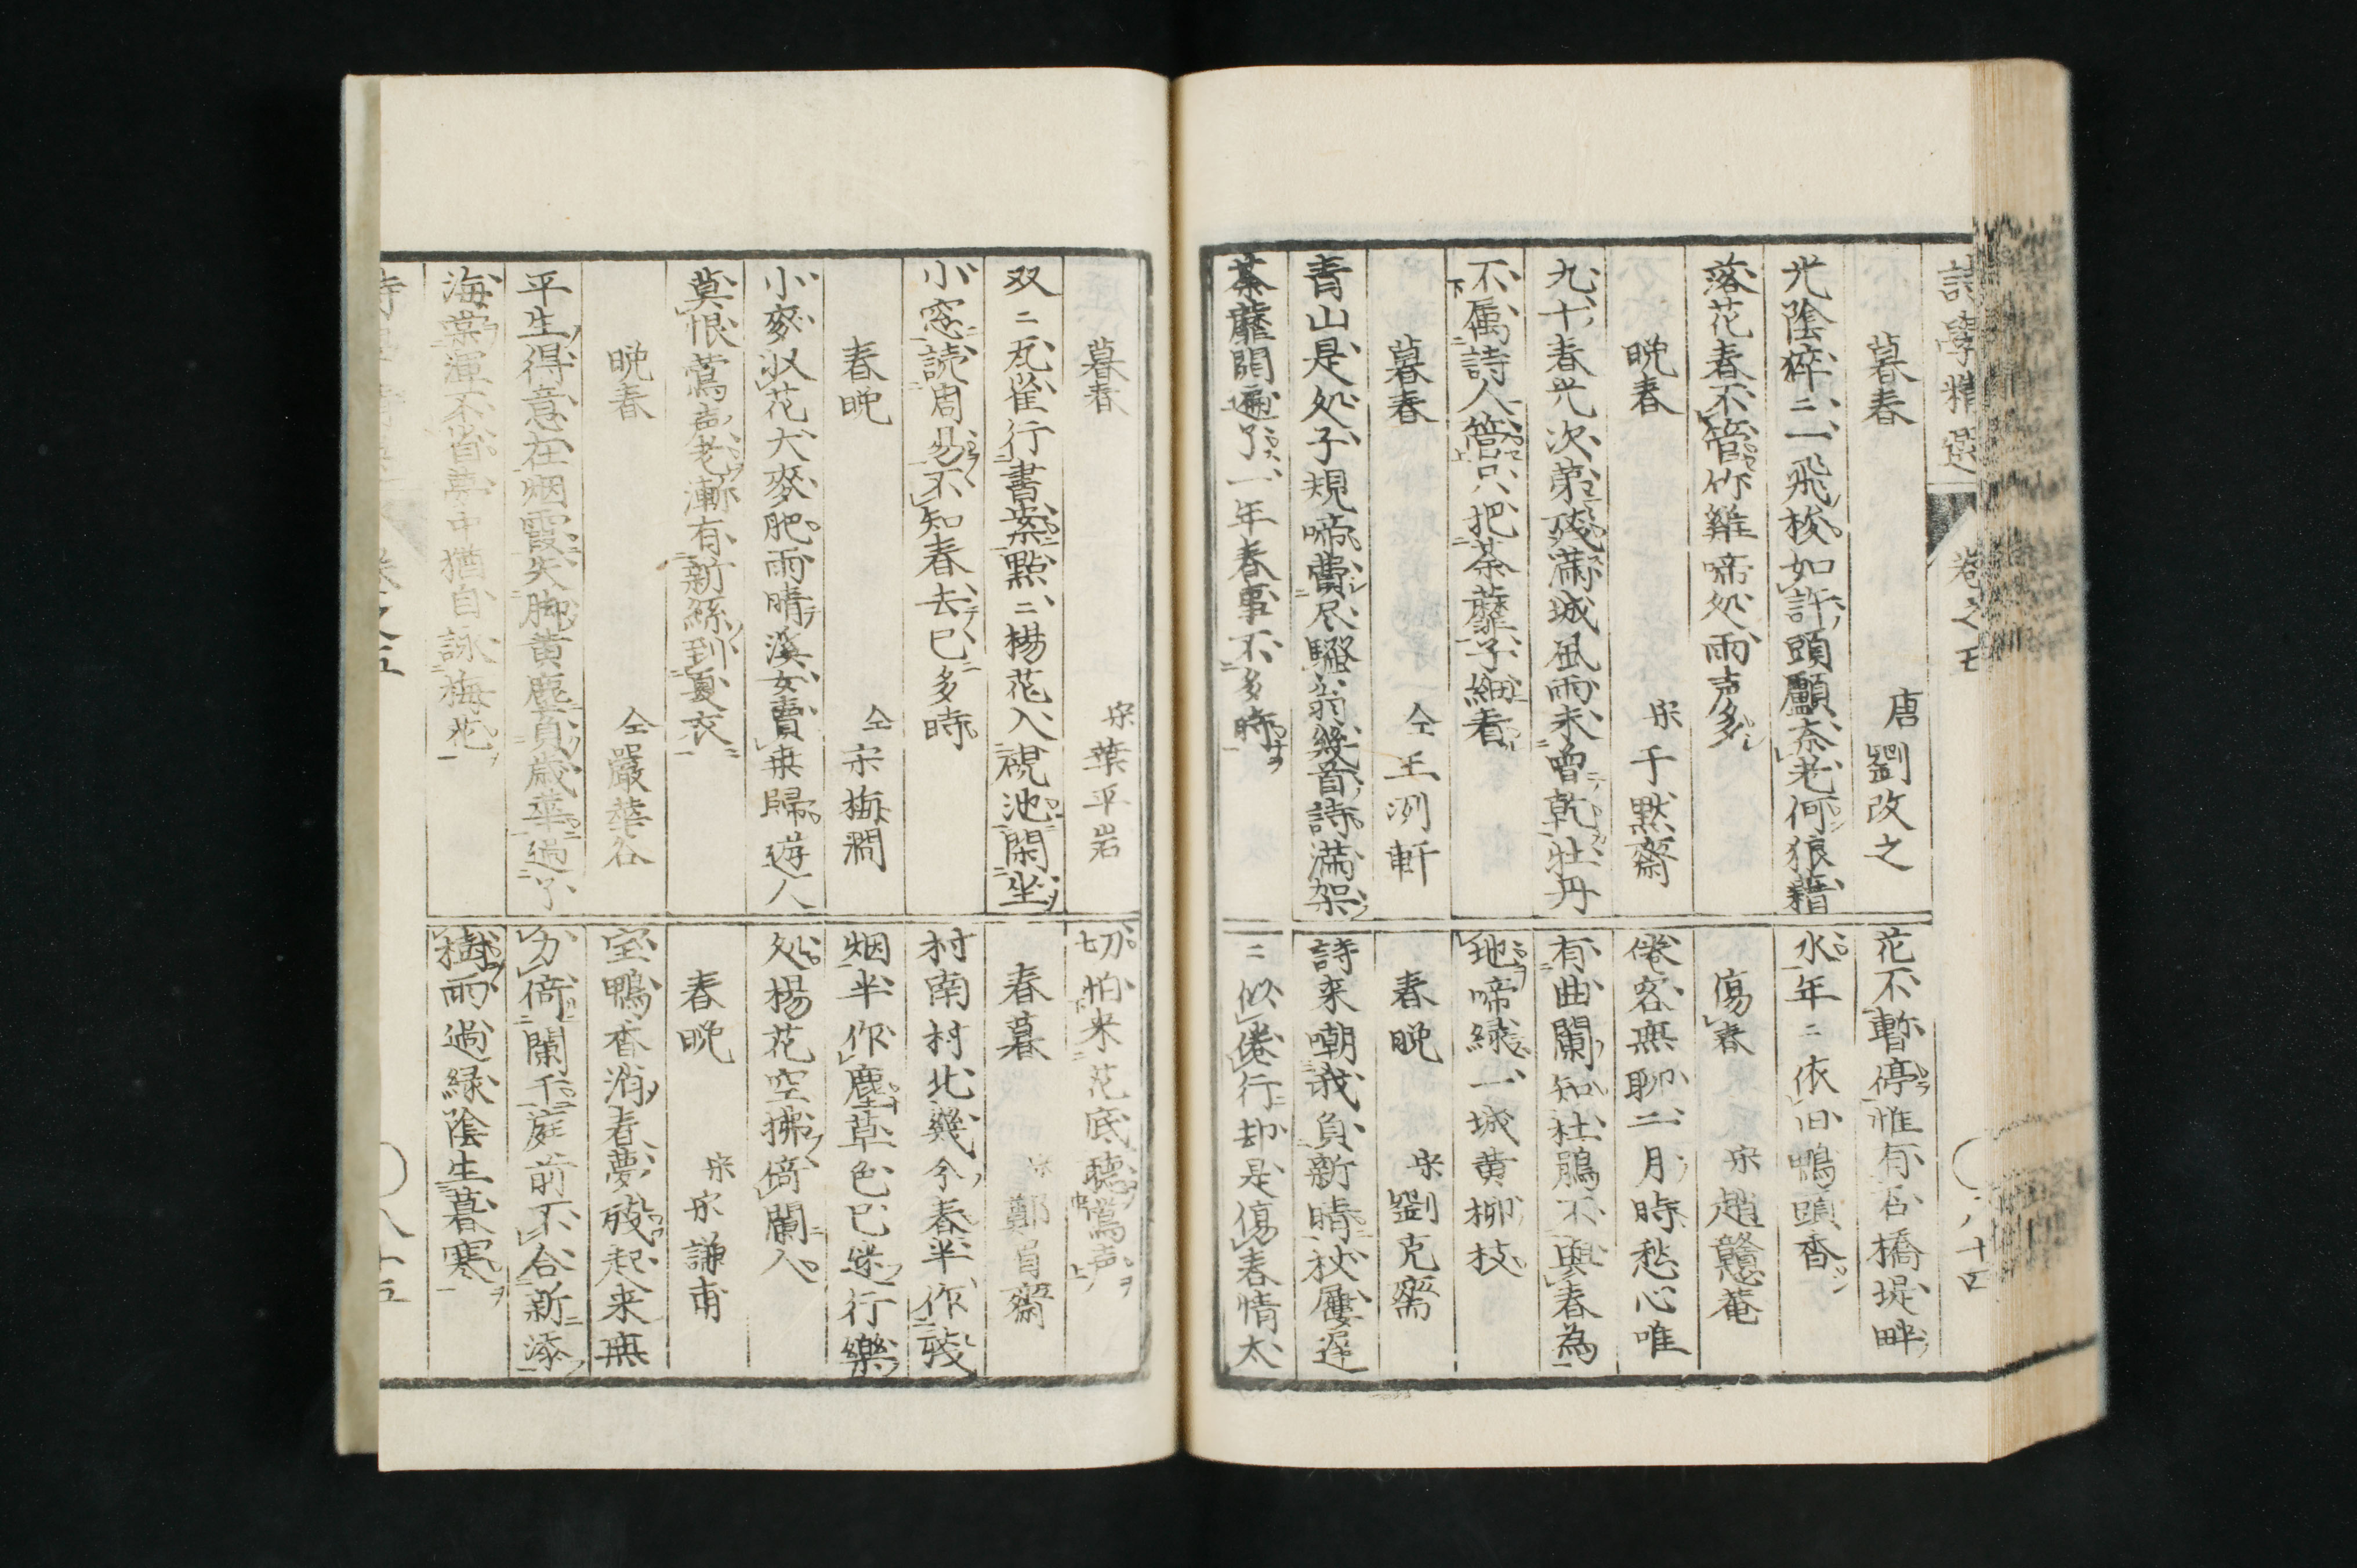 詩學精選 卷之五
暮春 唐 劉改之
光陰猝〻一飛梭如許頭顱奈老何狼藉
落花春不管竹雞啼処雨声多
晩春 宋 千默齋
九十春光次第残満城風雨未曽乾牡丹
不属詩人管只把荼蘼子細看
暮春 仝 王洌軒
青山是処子規啼費尽騷翁幾首詩満架
荼蘼開遍了一年春事不多時
花不暫停惟有否橋堤畔
水年〻依旧鴨頭香
傷春 宋 趙戇菴
倦客無聊二月時愁心唯
有曲闌知杜鵑不與春為
地啼緑一城黄柳枝
春晩 宋 劉克齋
詩来嘲我負新晴杖屨遅
〻似倦行却是傷春情太
暮春 宋 葉平岩
双〻瓦雀行書案點〻楊花入視池閑坐
小窓読周易不知春去已多時
春晩 仝 宋梅澗
小麥収花大麥肥雨晴溪女賣来歸遊人
莫恨鶯声老漸有新絲到夏衣
晩春 仝 嚴華谷
平生得意在烟霞失脚黄塵負歳華過了
海棠渾不省夢中猶自詠梅花
切怕来花底聴鶯声
春暮 宋 鄭眉齋
村南村北幾今春半作殘
烟半作塵草色已迷行樂
処楊花空拂倚闌人
春晩 宋 宋謙甫
宝鴨香消春夢残起来無
力倚闌干庭前不合新添
樹雨過緑陰生暮寒